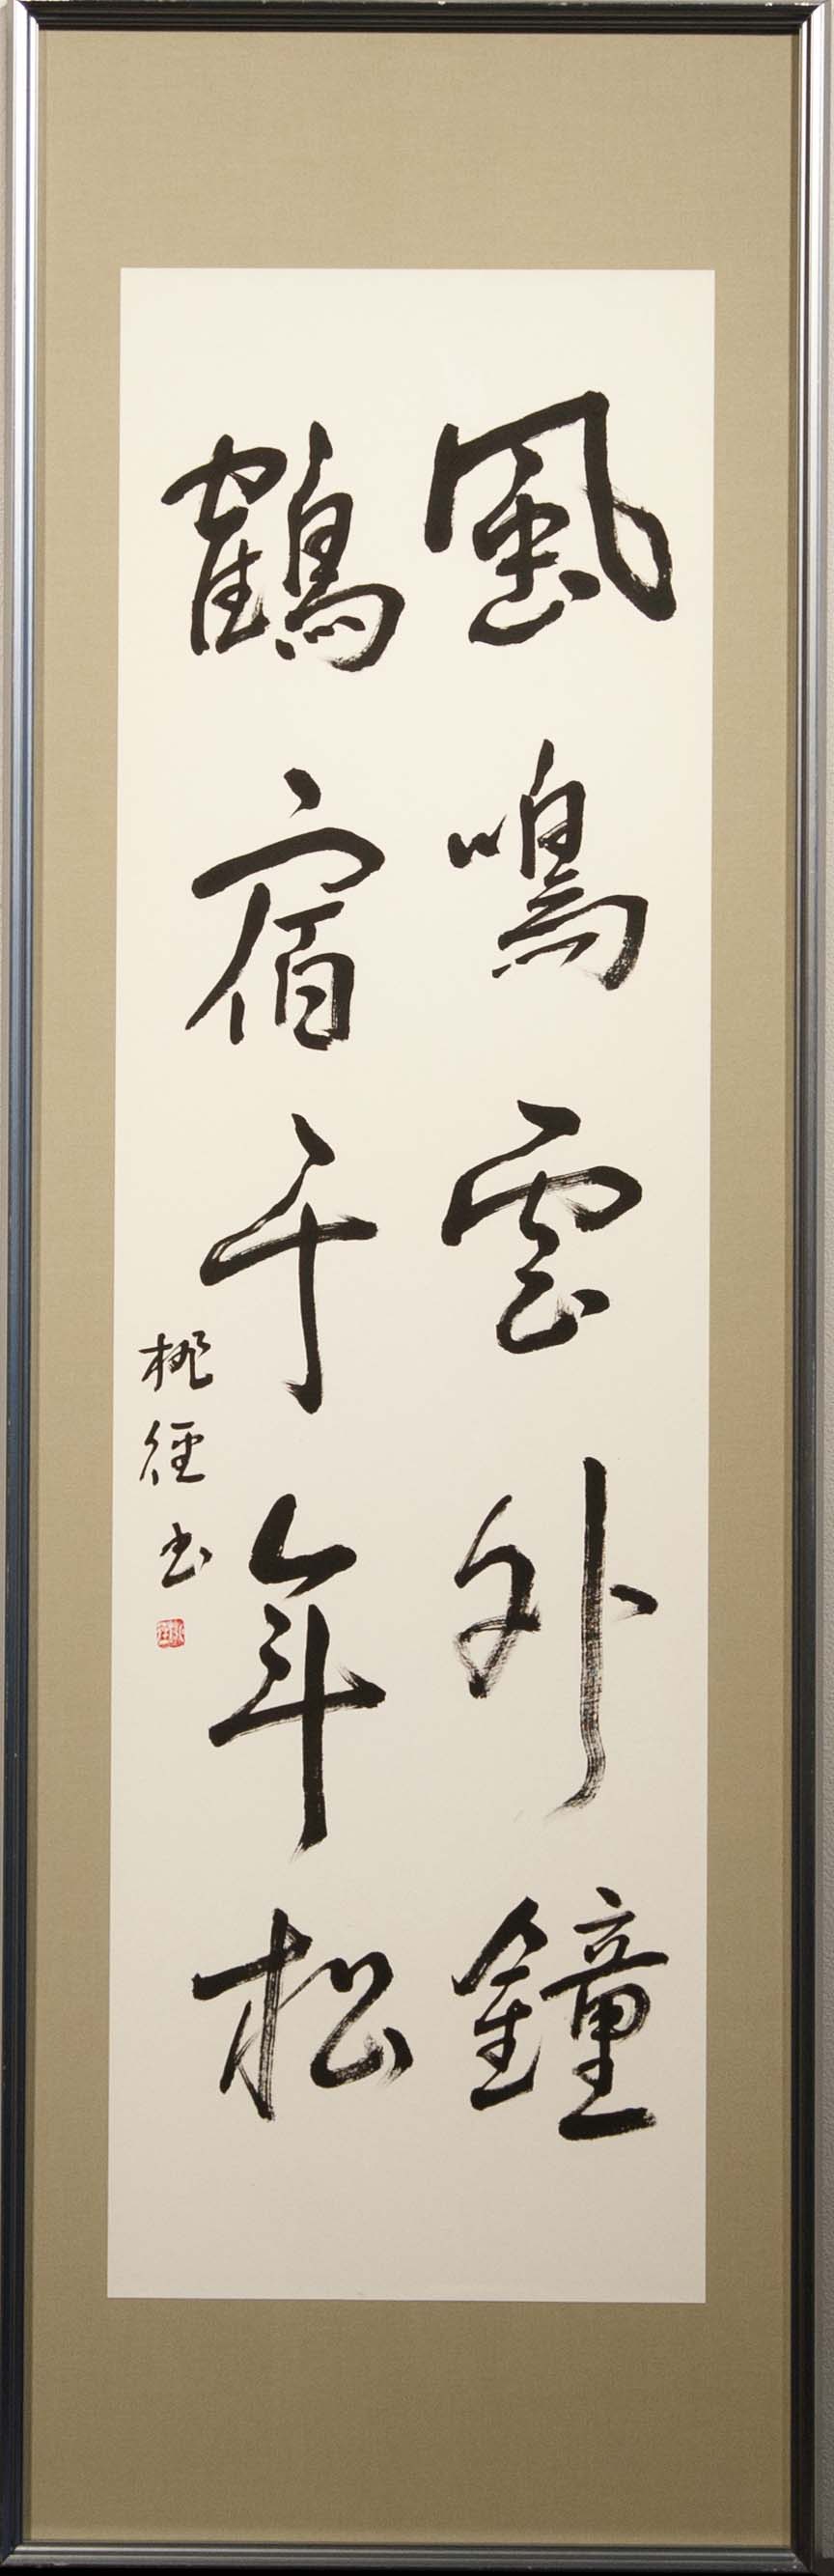 風鳴雲外鐘
鶴宿千年松
桃徑书